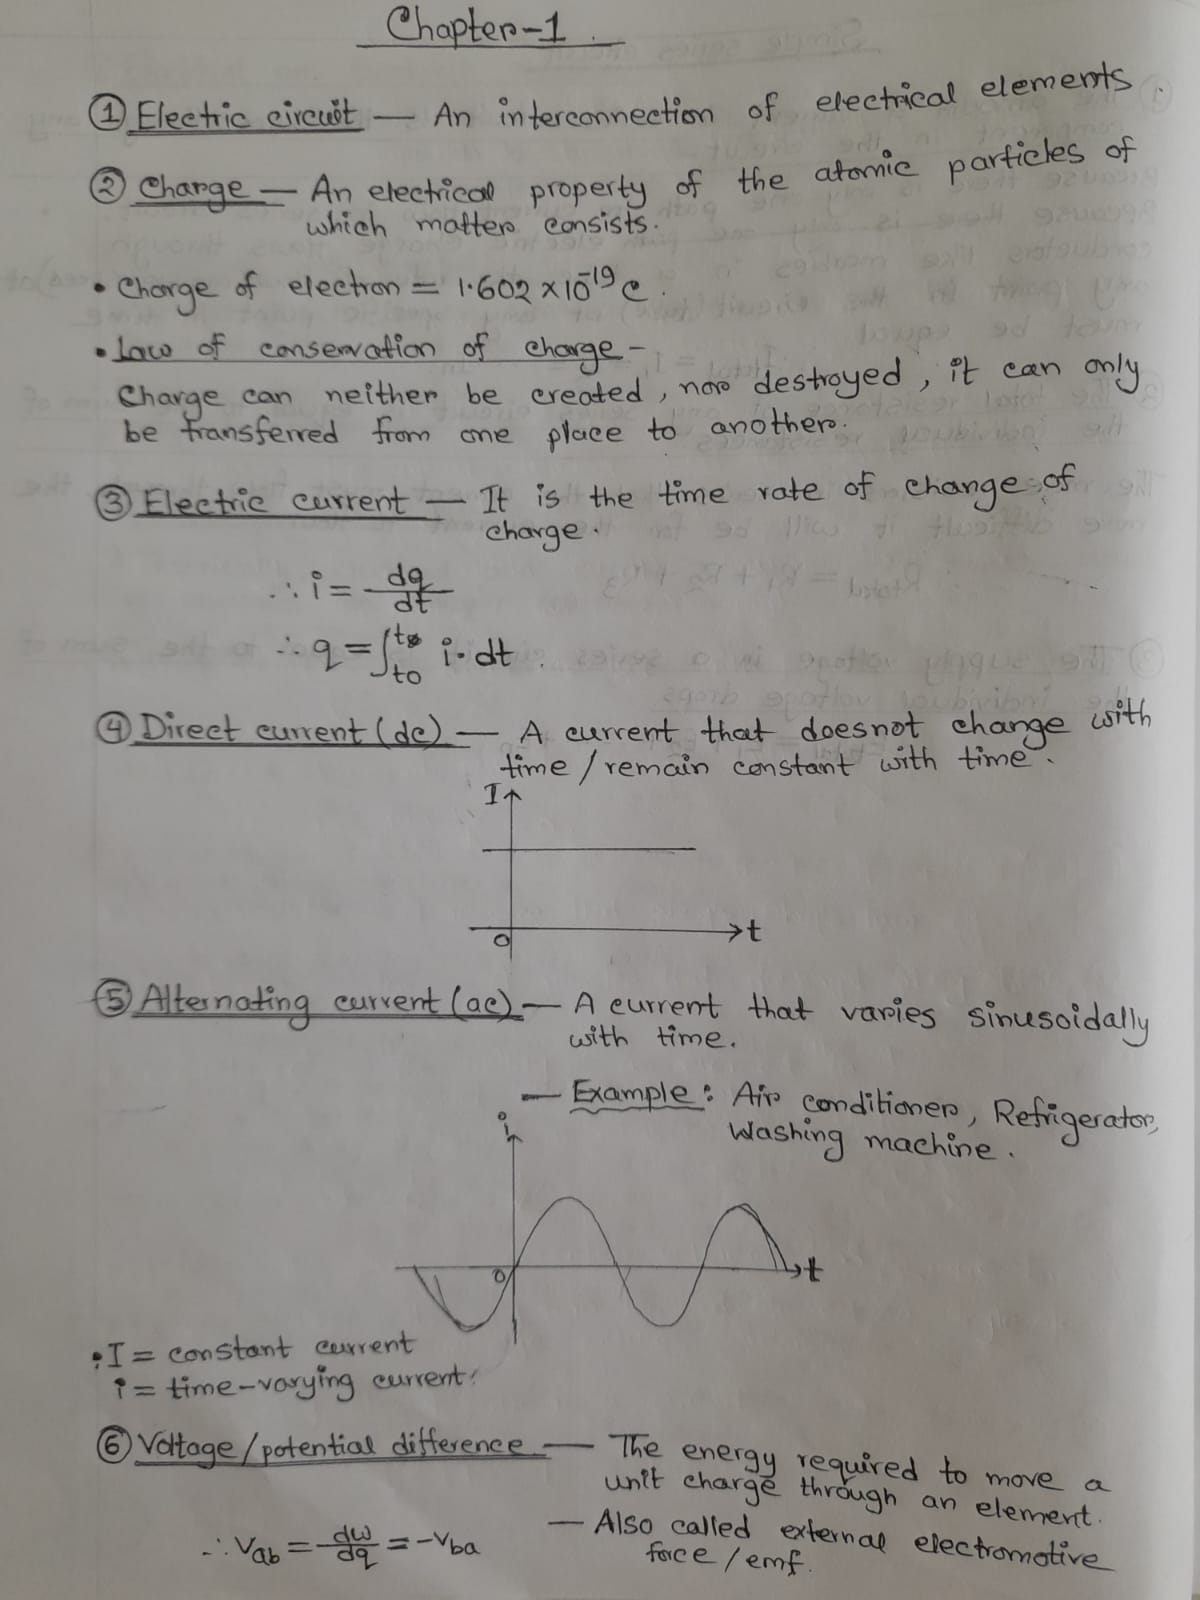 Chapter-1.
① Electric circuit — An interconnection of electrical elements.
② Charge — An electrical property of the atomic particles of
which matter consists.
• Charge of electron = 1.602 × 10⁻¹⁹ C.
• Law of conservation of charge –
Charge can neither be created, nor destroyed, it can only
be transferred from one place to another.
③ Electric current — It is the time rate of change of
charge.
∴ i = dq/dt
∴ q = ∫ₜ₀ᵗ i·dt.
④ Direct current (dc) — A current that doesnot change with
time / remain constant with time.
I
O
t
⑤ Alternating current (ac) — A current that varies sinusoidally
with time.
— Example: Air conditioner, Refrigerator,
Washing machine.
i
O
t
• I = constant current
i = time-varying current.
⑥ Voltage/potential difference — The energy required to move a
unit charge through an element.
— Also called external electromotive
force/emf.
∴ Vab = dw/dq = -Vba